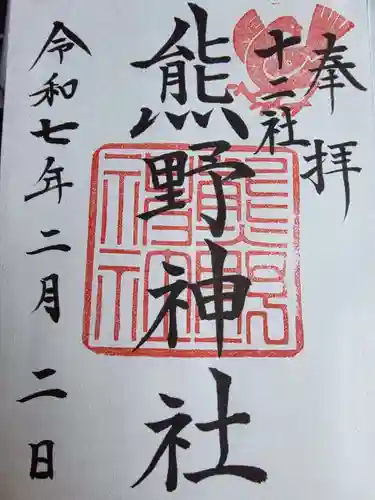 奉拝
十二社
熊野神社
令和七年二月二日
熊野神社